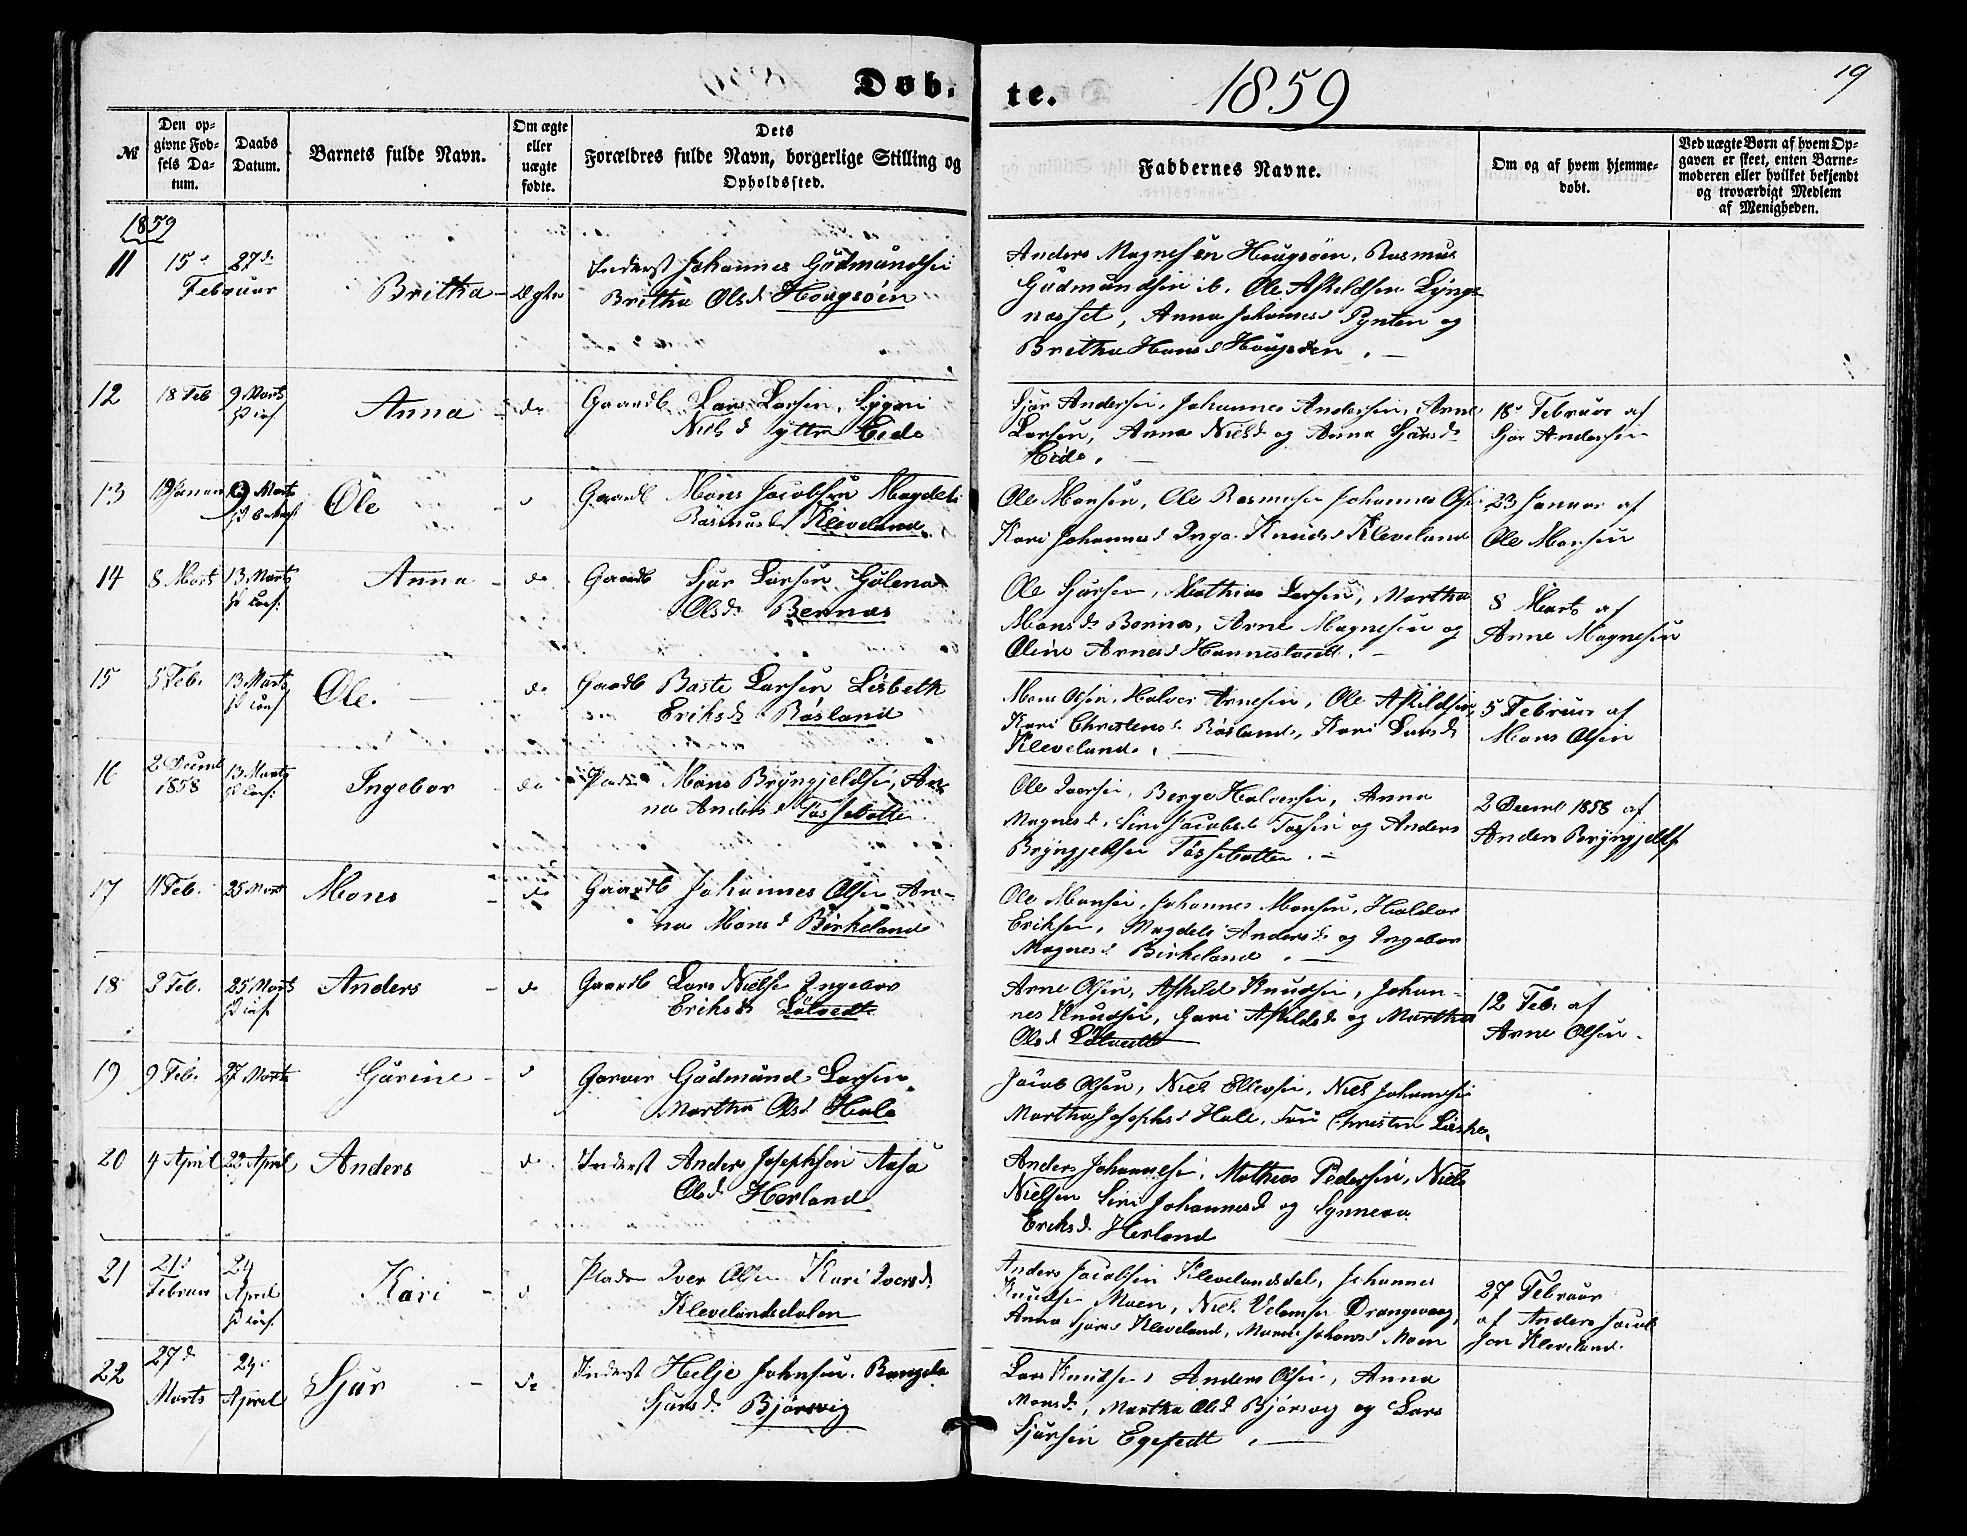 Døb-
te.
1859
19
№
Den op-
givne Fød-
sels Da-
tum.
Daabs
Datum.
Barnets fulde Navn.
Om ægte
eller
uægte
fødte.
Dets
Forældres fulde Navn, borgerlige Stilling og
Opholdssted.
Faddernes Navne.
Om og af hvem hjemme-
døbt.
Ved uægte Børn af hvem Op-
gaven er skeet, enten Barne-
moderen eller hvilket bekjendt
og troværdigt Medlem
af Menigheden.
1859
11
15
Februar
27
Britha
Ægte
Inderst Johannes Gudmundsen
Britha Olsd Hougsøen
Anders Magnesen Hougsøen, Rasmus
Gudmundsen ib. Ole Askildsen Lyngs
næset, Anna Johannesd Pynten og
Britha Hansd Hougsøen.
12
18 Feb
9 Marts
Anna
do
Gaardb Lars Larsen, Sygni
Nielsd ytre Eide
Sjur Andersen, Johannes Andersen, Arne
Larsen, Anna Nielsd og Anna Sjursd
Eide.
18 Februar af
Sjur Andersen
13
19 Januar
9 Marts
Ole
Gaardb Mons Jacobsen Magdeli
Rasmusd Kleveland.
Ole Monsen, Ole Rasmusen Johannes Ols
Kari Johannesd Inga Knudsd Kleveland
23 Januar af
Ole Monsen
14
8 Marts
13 Marts
Anna
do
Gaardb Sjur Larsen Gølena
Olsd Bernæs
Ole Sjursen, Mathias Larsen, Martha
Monsd Bernæs, Arne Magnesen og
Oline Arnesd Hannestvedt.
8 Marts af
Arne Magnesen
15
5 Feb.
13 Marts
Ole.
do
Gaardb Baste Larsen Lisbeth
Eriksd Røsland
Mons Olsen, Halvor Arnesen, Ole Askildsen
Kari Christensd Røsland, Kari Larsd
Kleveland.
5 Februar af
Mons Olsen
16
2 Decemb
1858
13 Marts
Ingebor
do
Plads Mons Brynjeldsen, An-
na Andersd Tøssebotten
Ole Iversen, Berge Halversen, Anna
Magnesd, Siri Jacobsd Tøssen og Anders
Bryngjeldsen Tøssebotten.
2 Decemb 1858 af
Anders Bryngjelds
17
11 Feb.
25 Mart
Mons
do
Gaardb Johannes Olsen An-
na Monsd Birkeland
Ole Monsen, Johannes Monsen, Haldor
Eriksen, Magdeli Andersd og Ingebor
Magnesd Birkeland.
18
3 Feb.
25 Marts
Anders
do
Gaardb Lars Nielsen Ingebor
Eriksd
Arne Olsen, Askild Knudsen, Johan-
nes Knudsen, Gari Askildsd og Martha
Olsd
12 Feb. af
Arne Olsen.
19
9 Feb.
27 Marts
Gurine
Garver Gudmund Larsen
Martha Olsd Hole
Jacob Olsen, Niels Ellevsen, Niels Johannesen
Martha Josephsd Hole,
20
4 April
April
Anders
Inderst Anders Josephsen Aasa
Olsd Herland
Anders Johannesen, Mathias Pedersen, Niels
Nielsen Siri Johannesd og Synneva
Eriksd Herland
21
21
Februar
24
April
Kari
Plads Iver Olsen Kari Iversd
Klevelandsdalen
Anders Jacobsen Klevelandsdal, Johannes
Knudsen Moen, Niels Drangevaag,
Anna Sjursd Kleveland, Johansd Moen
27 Februar
af Anders Jacob
sen Kleveland.
22
27
Marts
24
April
Sjur
do
Inderst Helje Johnsen.
Sjursd Bjørsvig
Lars Knudsen, Anders Olsen, Anna
Monsd, Martha Olsd Bjørsvig og Lars
Sjursen